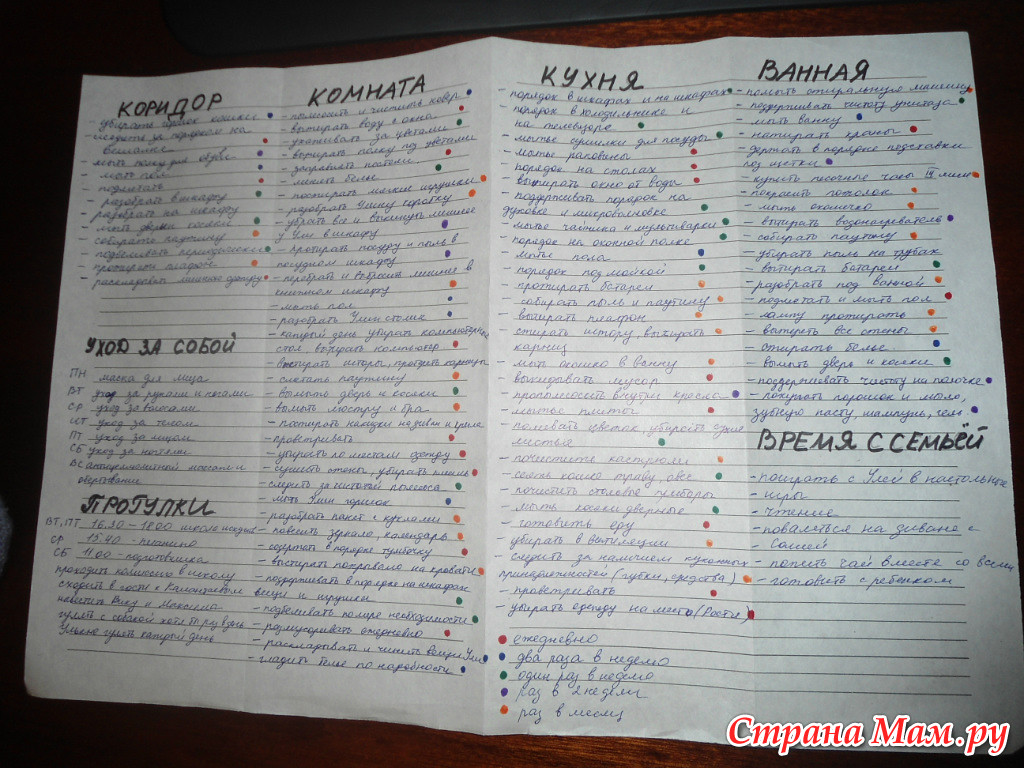 КОРИДОР
- убирать лоток кошке
- следить за порядком на
вешалке
- мыть полку для обуви
- мыть пол
- подметать
- разобрать в шкафу
- разобрать на шкафу
- мыть двери косяки
- собирать паутину
- подвеливать периодически
- протирать плафон
- раскладывать одежду
УХОД ЗА СОБОЙ
ПН маска для лица
ВТ уход за руками и ногами
СР уход за волосами
ЧТ уход за телом
ПТ уход за лицом
СБ уход за ногтями
ВС антицеллюлитный массаж и
обертывание
ПРОГУЛКИ
ВТ, ПТ 16.30 - 18.00 школа
СР 15.40 - пианино
СБ 11.00 - подготовишка
проходить комиссию в школу
сходить в гости к
навестить Вику и Максима
гулять с собакой хотя бы раз в день
Ульяне гулять каждый день
КОМНАТА
- пылесосить и чистить ковер
- вытирать воду с окна
- ухаживать за цветами
- вытирать полку под цветами
- заправлять постели
- менять белье
- постирать мягкие игрушки
- разобрать Улину коробку
- убрать все и выкинуть лишнее
у Ули в шкафу
- протирать посуду и пыль в
посудном шкафу
- перебрать и выкинуть лишнее в
шкафу
- мыть пол
- разобрать Улин столик
- каждый день убирать компьютерный
стол, вытирать компьютер
- вытирать шторы, протирать карнизы
- сметать паутину
- вымыть дверь и косяки
- вымыть люстру и бра
- постирать накидки на диван и кресла
- проветривать
- убирать по местам одежду
- сушить стены, убирать
- следить за чистотой пылесоса
- мыть Улин горшок
- разобрать пакет с куклами
- повесить зеркало, календарь
- содержать в порядке тумбочку
- выстирать покрывало на кровать
- поддерживать в порядке на шкафах
вещи и игрушки
- подвеливать по мере необходимости
- размусоривать ежедневно
- раскладывать и чинить вещи Ули
- гладить белье по надобности
КУХНЯ
- порядок в шкафах и на шкафах
- порядок в холодильнике и
на телевизоре
- мытье сушилки для посуды
- мытье раковины
- порядок на столах
- вытирать окно от воды
- поддерживать порядок на
духовке и микроволновке
- мытье чайника и мультиварки
- порядок на оконной полке
- мытье пола
- порядок под мойкой
- протирать батареи
- собирать пыль и паутину
- вытирать плафон
- стирать штору, вытирать
карниз
- мыть окошко в ванну
- выкидывать мусор
- пропылесосить внутри кресла
- мытье плиты
- поливать цветок, убирать сухие
листья
- почистить кастрюли
- сеять кошке траву, овес
- почистить столовые приборы
- мыть косяки дверные
- готовить еду
- убирать в вентиляции
- следить за наличием кухонных
принадлежностей (губки, средства)
- проветривать
- убирать одежду на место (Ростик)
ежедневно
два раза в неделю
один раз в неделю
раз в 2 недели
раз в месяц
ВАННАЯ
- помыть стиральную машину
- поддерживать чистоту унитаза
- мыть ванну
- натирать краны
- держать в порядке подставки
под щетки
- купить песочные часы
- покрасить потолок
- мыть окошечко
- вытирать водонагреватель
- собирать паутину
- убирать пыль на трубах
- вытирать батареи
- разобрать под ванной
- подметать и мыть пол
- лампу протирать
- вытереть все стены
- стирать белье
- вымыть дверь и косяки
- поддерживать чистоту на полочке
- покупать порошок и мыло,
зубную пасту, шампунь, гель
ВРЕМЯ С СЕМЬЁЙ
- поиграть с Улей в настольные
- игры
- чтение
- поваляться на диване с
- Сашей
- попить чай вместе со всеми
- готовить с ребенком
Страна Мам.ру